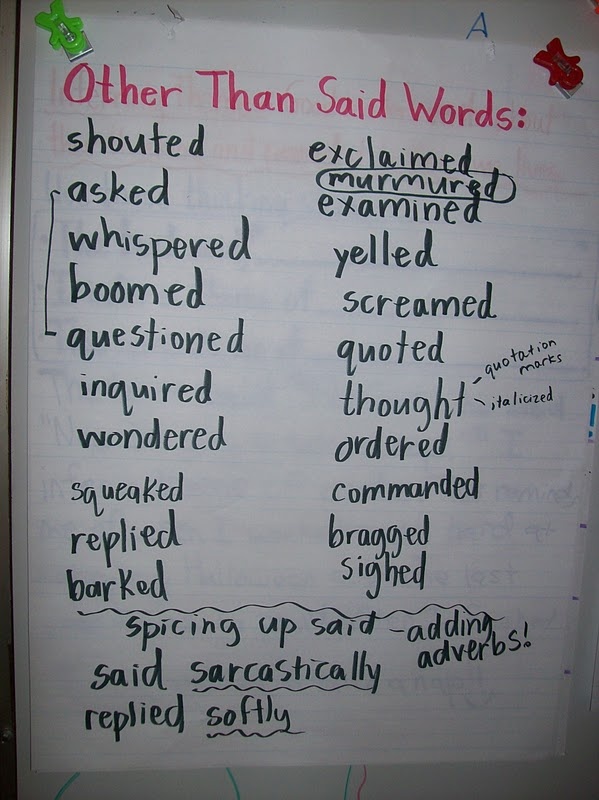 A
Other Than Said Words:
shouted
asked
whispered
boomed
questioned
inquired
wondered
squeaked
replied
barked
exclaimed
murmured
examined
yelled
screamed
quoted
thought
quotation
marks
italicized
ordered
commanded
bragged
sighed
spicing up said - adding
adverbs!
said sarcastically
replied softly